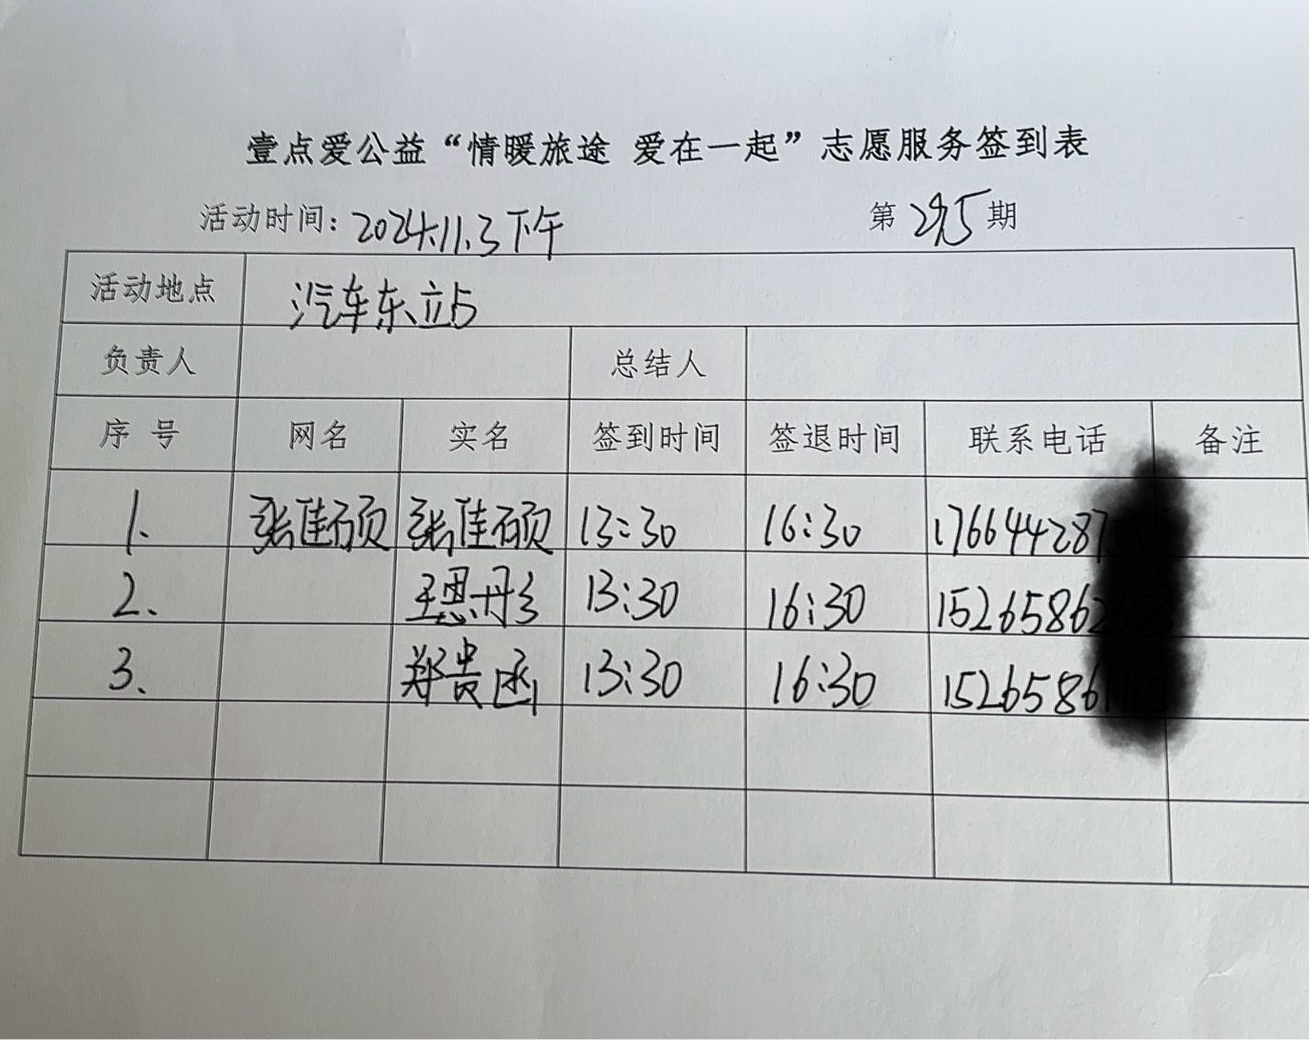 壹点爱公益“情暖旅途 爱在一起”志愿服务签到表
活动时间：2024.11.3下午 第295期
活动地点 汽车东站
负责人 总结人
序号 网名 实名 签到时间 签退时间 联系电话 备注
1. 张佳硕 张佳硕 13:30 16:30 176644287
2. 王恩彤 13:30 16:30 15265862
3. 郑贵函 13:30 16:30 1526586